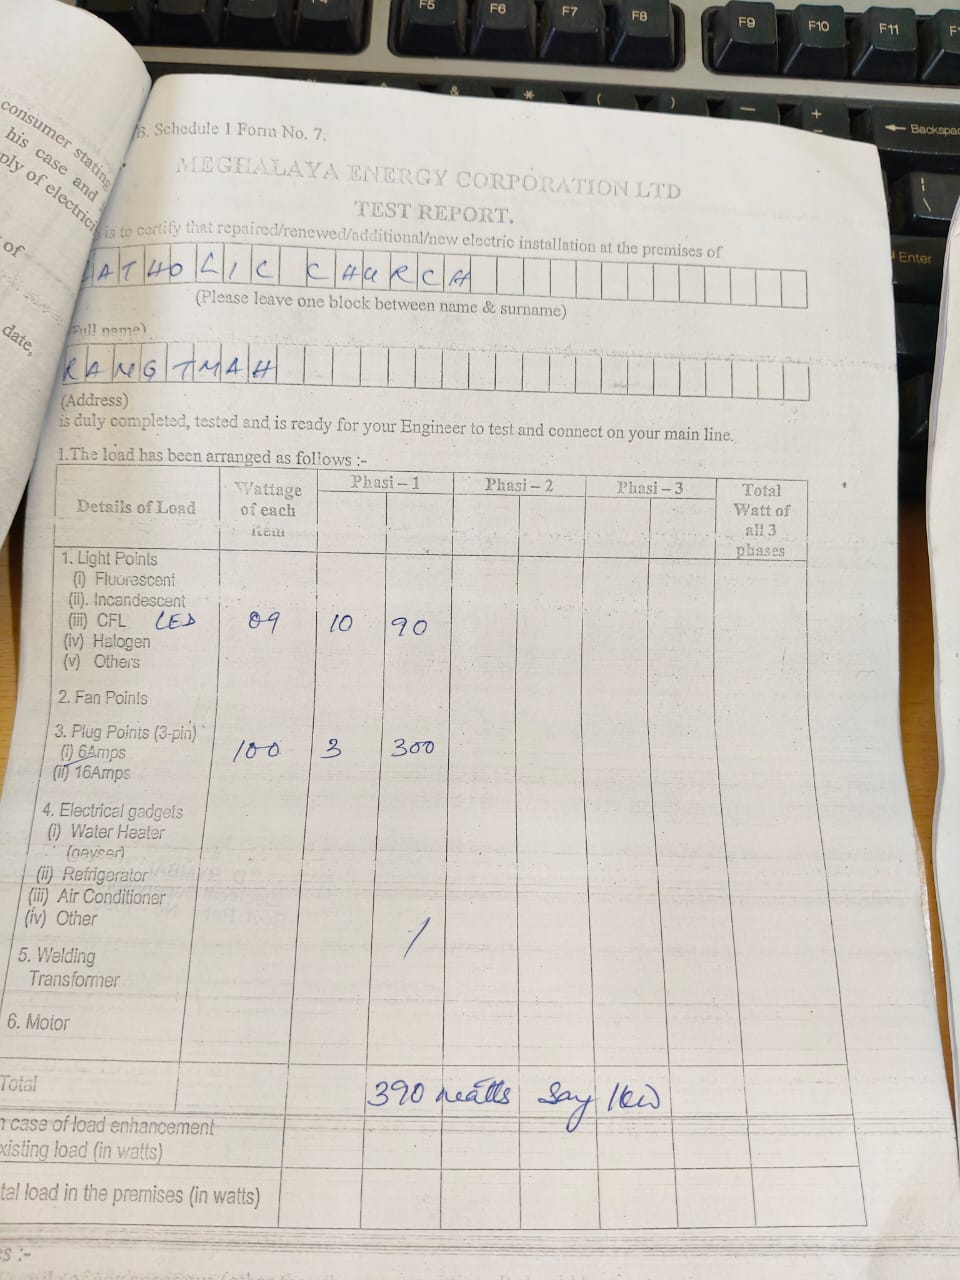 consumer stating
his case and
ply of electrici
of
date,
B. Schedule 1 Form No. 7.
MEGHALAYA ENERGY CORPORATION LTD
TEST REPORT.
is to certify that repaired/renewed/additional/new electric installation at the premises of
CATHOLIC CHURCH
(Please leave one block between name & surname)
(Full name)
RANGTMAH
(Address)
is duly completed, tested and is ready for your Engineer to test and connect on your main line.
1.The load has been arranged as follows :-
Details of Load Wattage of each item Phasi – 1 Phasi – 2 Phasi – 3 Total Watt of all 3 phases
1. Light Points
(i) Fluorescent
(ii). Incandescent
(iii) CFL LED 09 10 90
(iv) Halogen
(v) Others
2. Fan Points
3. Plug Points (3-pin)
(i) 6Amps 100 3 300
(ii) 16Amps
4. Electrical gadgets
(i) Water Heater
(geyser)
(ii) Refrigerator
(iii) Air Conditioner
(iv) Other
5. Welding
Transformer
6. Motor
Total 390 watts say 1kw
n case of load enhancement
xisting load (in watts)
tal load in the premises (in watts)
es :-
F5 F6 F7 F8 F9 F10 F11
& * ( ) — +
Backspa
Enter